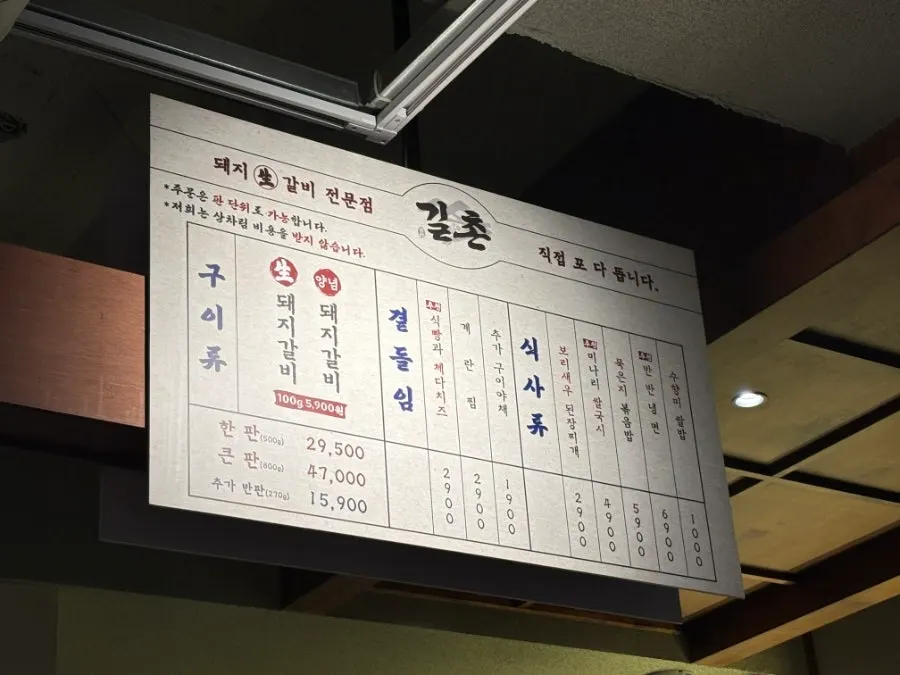 돼지 生 갈비 전문점
*주문은 판 단위로 가능합니다.
*저희는 상차림 비용을 받지 않습니다.
길촌
직접 포 다 뜹니다.
구이류
生 돼지갈비
양념 돼지갈비
100g 5,900원
한 판(500g) 29,500
큰 판(800g) 47,000
추가 반판(270g) 15,900
곁들임
추천 식빵과 체다치즈 2900
계란찜 2900
추가 구이야채 1900
식사류
보리새우 된장찌개 2900
추천 미나리 쌀국시 4900
묵은지 볶음밥 5900
추천 반반냉면 6900
수향미 쌀밥 1000